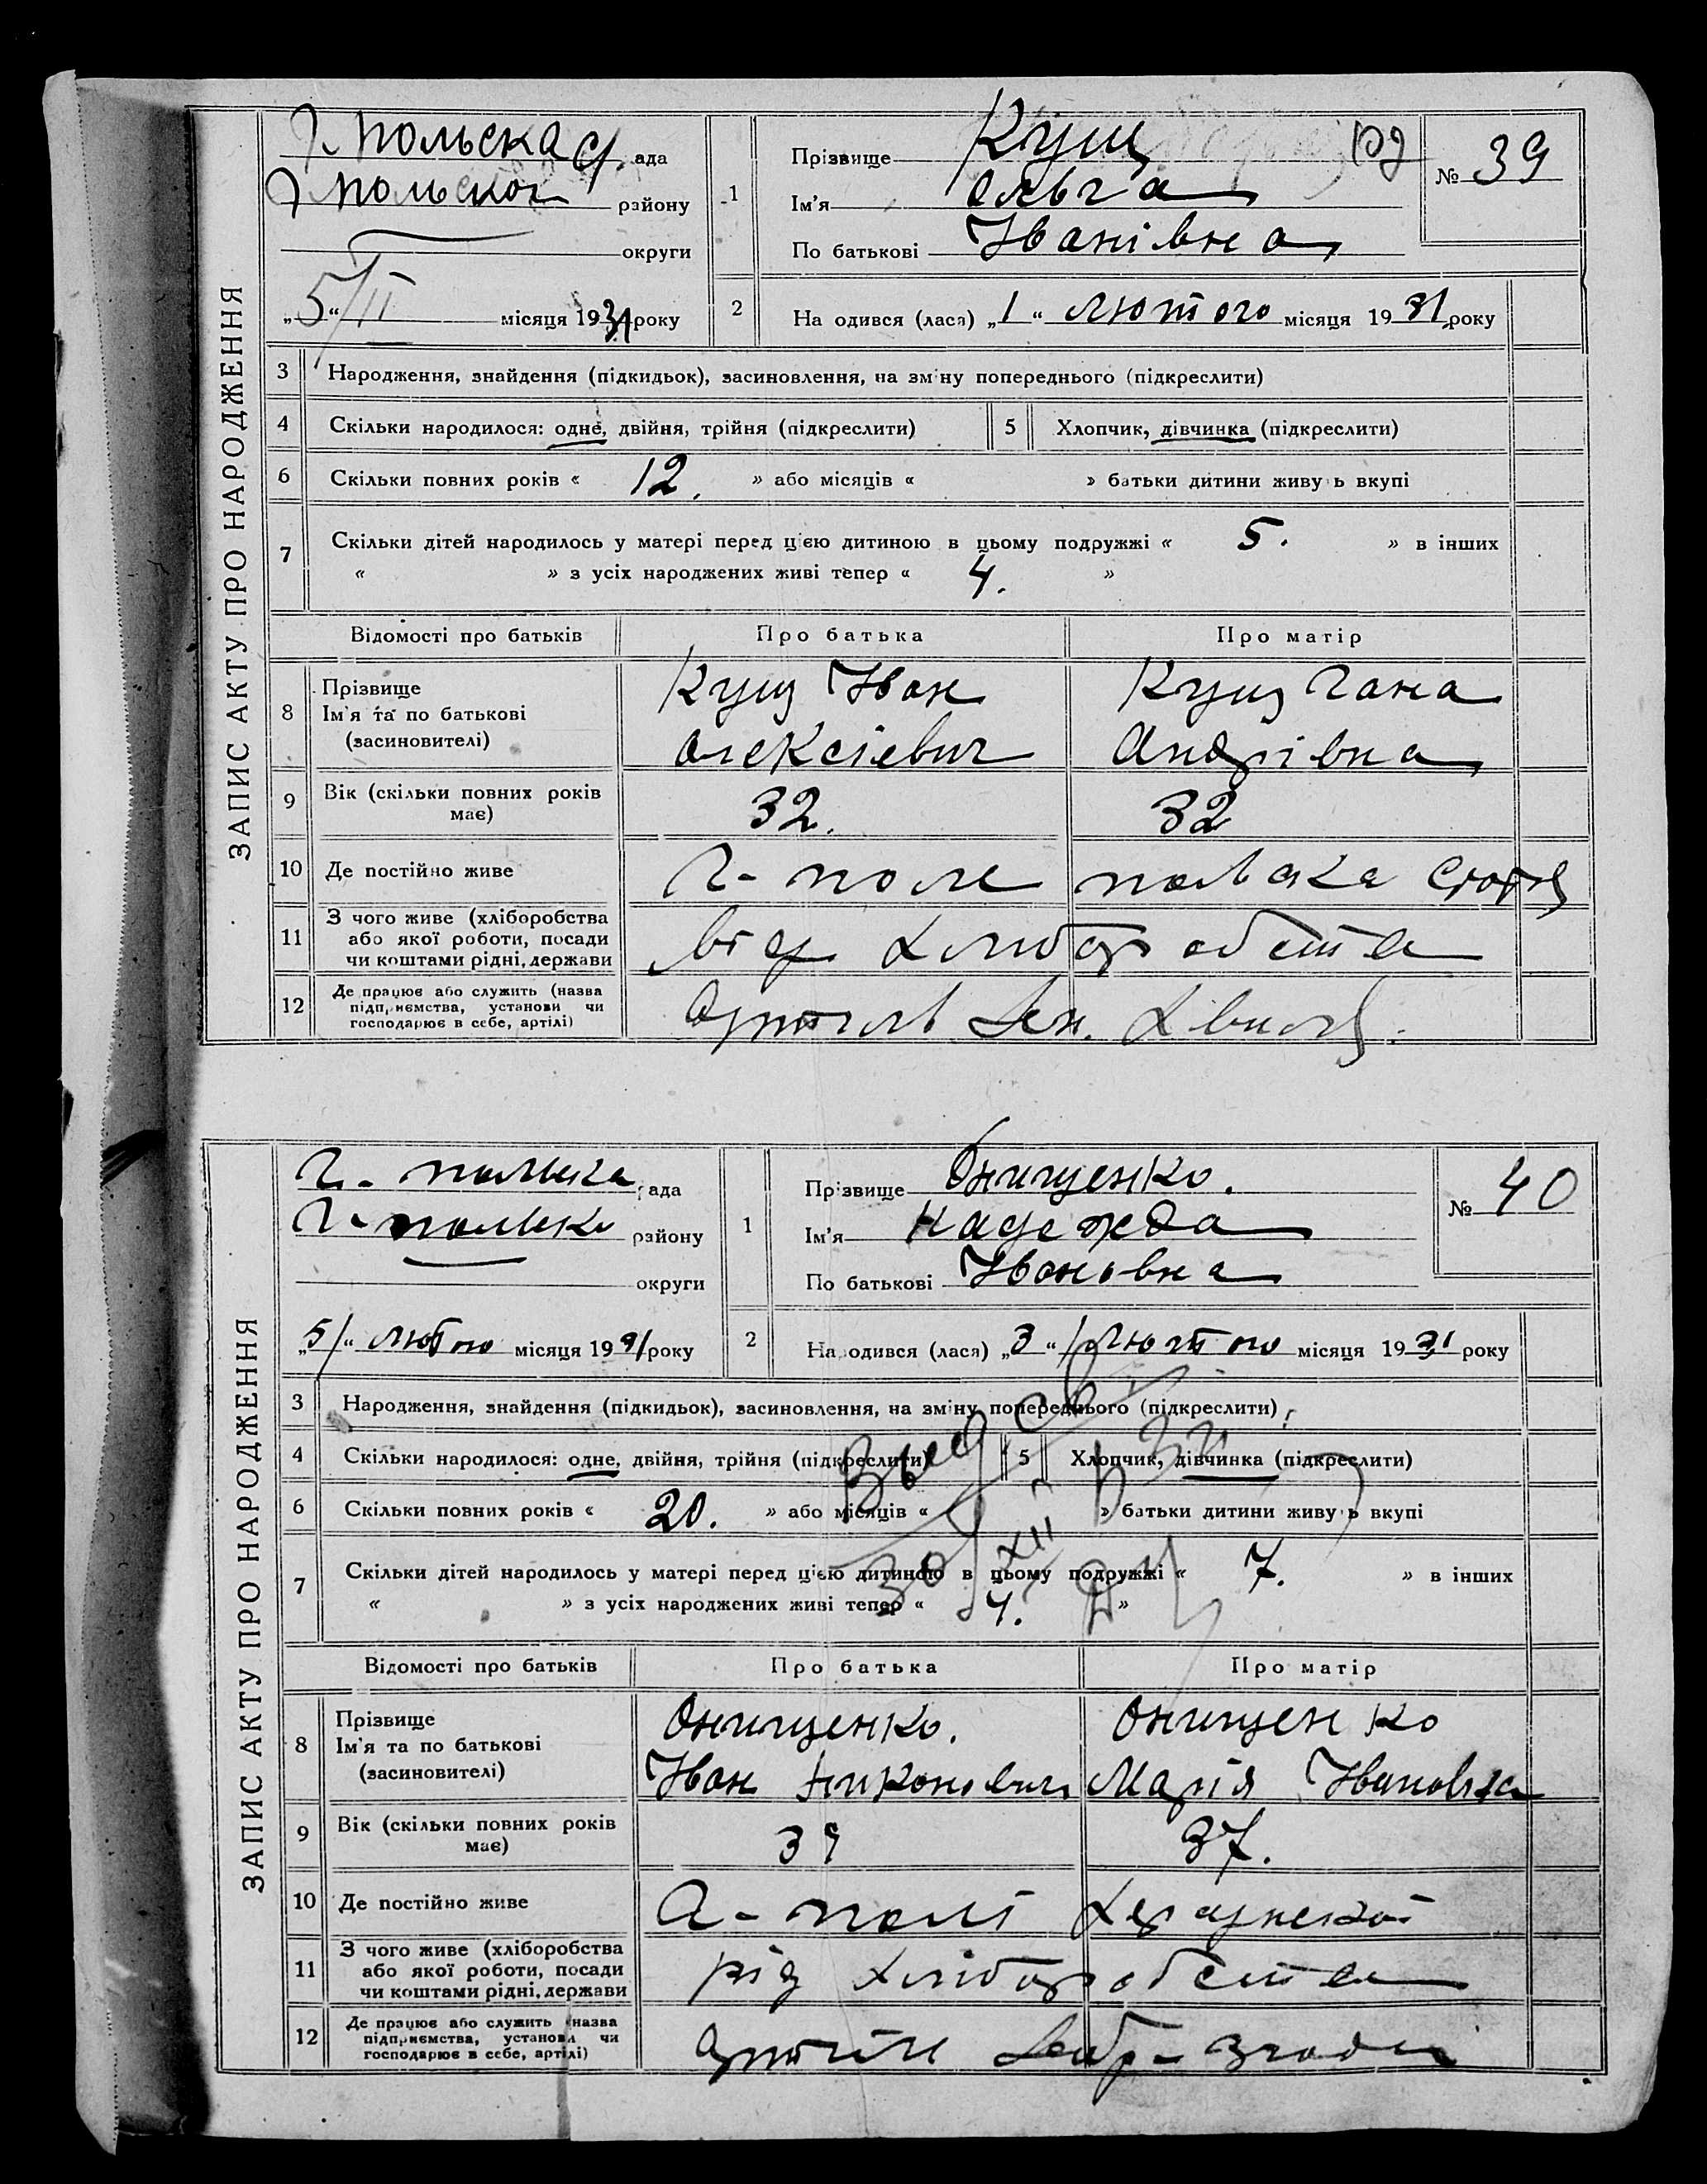 ЗАПИС АКТУ ПРО НАРОДЖЕННЯ
Г. польска с/рада
Г польског району
округи
„5“/II місяця 1931 року
1
Прізвище Кущ
Ім'я Ольга
По батькові Іванівна
№ 39
2
На одився (лася) „1“ лютого місяця 1931 року
3 Народження, знайдення (підкидьок), засиновлення, на зміну попереднього (підкреслити)
4 Скільки народилося: одне, двійня, трійня (підкреслити) 5 Хлопчик, дівчинка (підкреслити)
6 Скільки повних років « 12. » або місяців « » батьки дитини живу ь вкупі
7 Скільки дітей народилось у матері перед цією дитиною в цьому подружжі « 5. » в інших
« » з усіх народжених живі тепер « 4. »
Відомості про батьків Про батька Про матір
8 Прізвище Ім'я та по батькові (засиновителі)
Кущ Іван Кущ Гана
Олексієвич Андріівна
9 Вік (скільки повних років має) 32. 32
10 Де постійно живе Г- поле польска
11 З чого живе (хліборобства або якої роботи, посади чи коштами рідні, держави
від хліборобства
12 Де працює або служить (назва підприємства, установи чи господарює в себе, артілі)
Артиль
ЗАПИС АКТУ ПРО НАРОДЖЕННЯ
Г.- польска рада
Г- польско району
округи
„5/“ лютого місяця 1931 року
1
Прізвище Онищенко.
Ім'я Надежда
По батькові Івановна
№ 40
2
На одився (лася) „3“ лютого місяця 1931 року
3 Народження, знайдення (підкидьок), засиновлення, на зміну попереднього (підкреслити)
4 Скільки народилося: одне, двійня, трійня (підкреслити) 5 Хлопчик, дівчинка (підкреслити)
6 Скільки повних років « 20. » або місяців « » батьки дитини живу ь вкупі
7 Скільки дітей народилось у матері перед цією дитиною в цьому подружжі « 7. » в інших
« » з усіх народжених живі тепер « 4. »
Відомості про батьків Про батька Про матір
8 Прізвище Ім'я та по батькові (засиновителі)
Онищенко. Онищенко
Іван Никонович Марія Івановна
9 Вік (скільки повних років має) 39 37.
10 Де постійно живе Г- полі
11 З чого живе (хліборобства або якої роботи, посади чи коштами рідні, держави
від хліборобства
12 Де працює або служить (назва підприємства, установи чи господарює в себе, артілі)